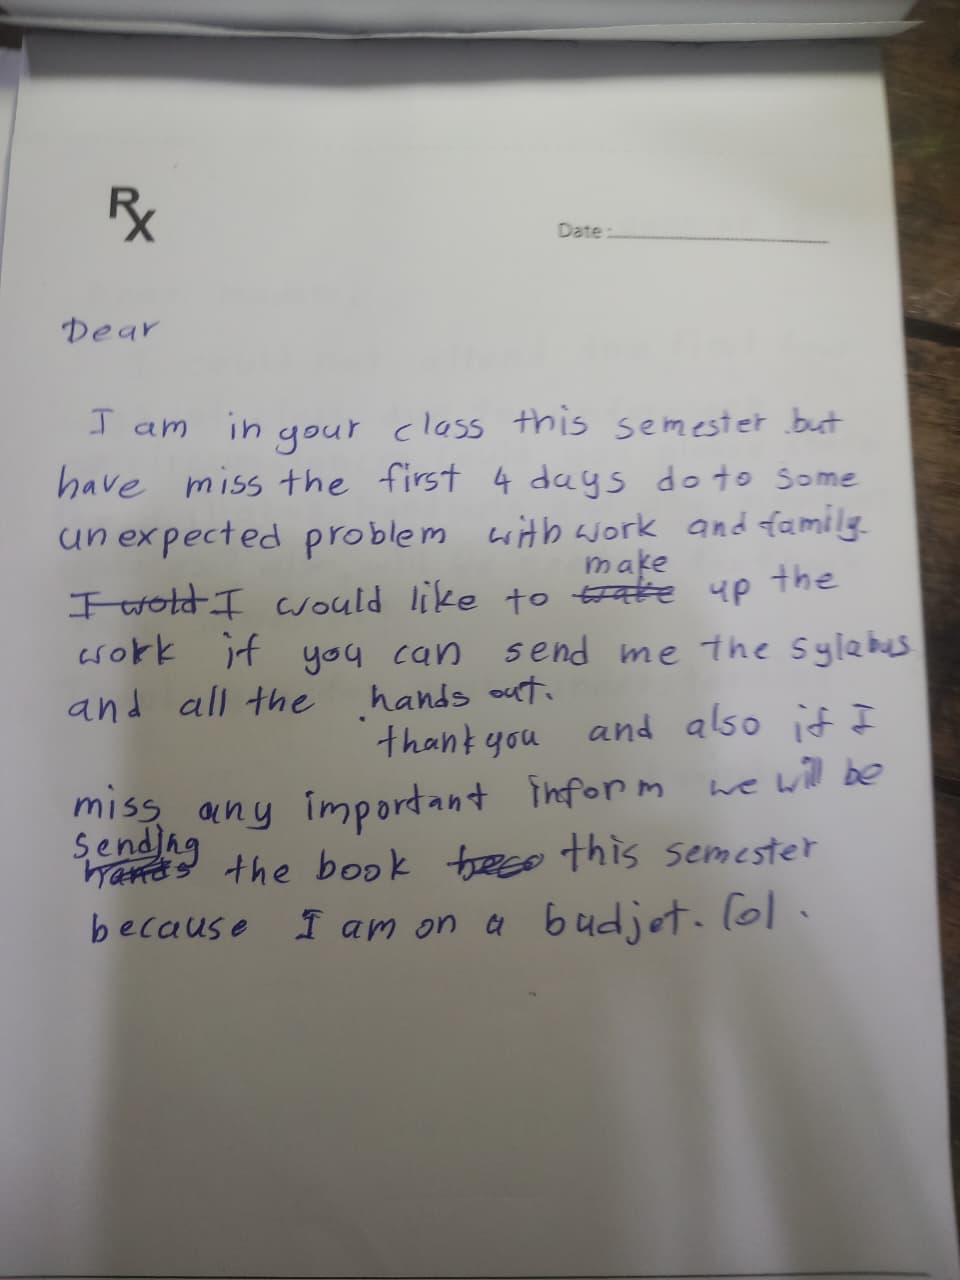 Rx
Date:
Dear
I am in your class this semester but
have miss the first 4 days do to some
unexpected problem with work and family.
I wold I would like to make up the
work if you can send me the sylabus
and all the hands out.
thank you and also if I
miss any important inform we will be
sending the book this semester
because I am on a budjet. lol.